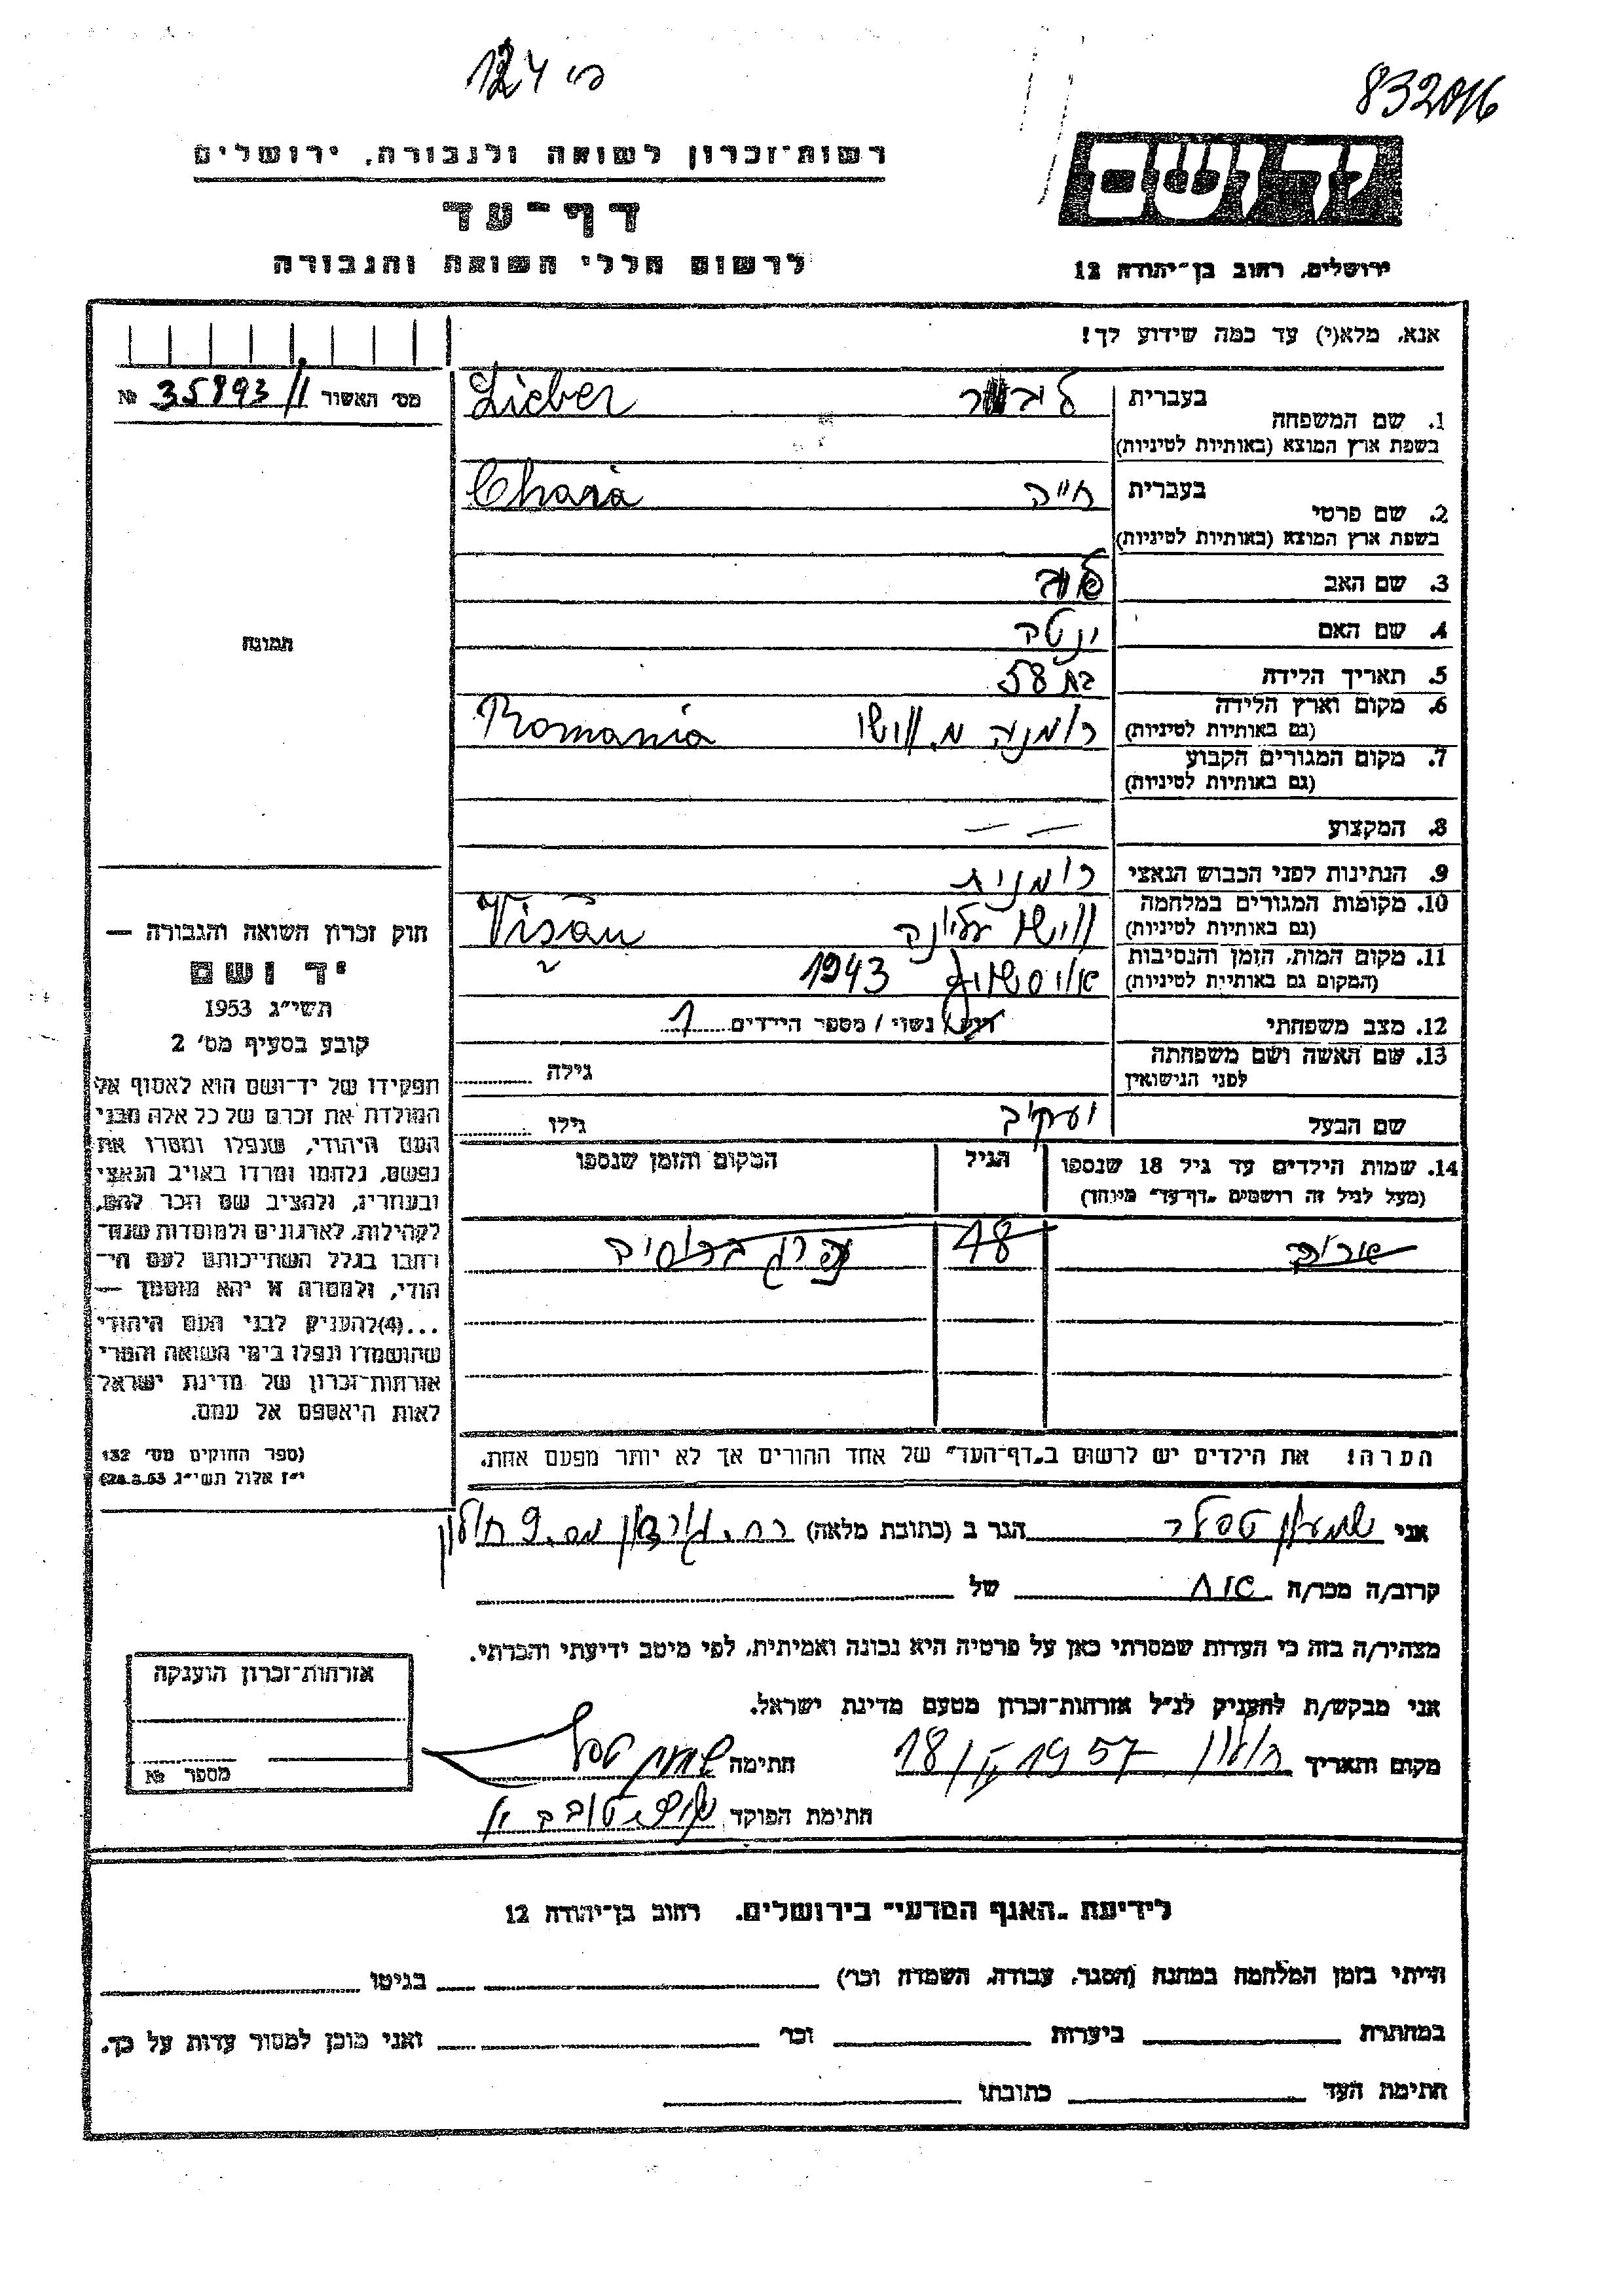 124 כי
832016
רשות־זכרון לשואה ולגבורה, ירושלים
דף־עד
לרשום חללי השואה והגבורה
יד ושם
ירושלים, רחוב בן־יהודה 12
אנא, מלא(י) עד כמה שידוע לך!
מס׳ האשור 35893/1 №
1. שם המשפחה
בעברית
Lieber
בשפת ארץ המוצא (באותיות לטיניות)
2. שם פרטי
בעברית חייה
Chaia
בשפת ארץ המוצא (באותיות לטיניות)
3. שם האב
4. שם האם ינטה
5. תאריך הלידה בת 58
6. מקום וארץ הלידה
(גם באותיות לטיניות)
רומניה מ. ווישו Romania
7. מקום המגורים הקבוע
(גם באותיות לטיניות)
8. המקצוע — —
9. הנתינות לפני הכבוש הנאצי רומנית
10. מקומות המגורים במלחמה
(גם באותיות לטיניות)
ווישו עליונה Vişău
11. מקום המות, הזמן והנסיבות
(המקום גם באותיות לטיניות)
אויסשוויץ 1943
12. מצב משפחתי
נשוי / מספר הילדים 1
13. שם האשה ושם משפחתה
לפני הנישואין
גילה
שם הבעל יעקיב גילו
14. שמות הילדים עד גיל 18 שנספו
(מעל לגיל זה רושמים „דף־עד״ מיוחד)
הגיל
המקום והזמן שנספו
18
הערה! את הילדים יש לרשום ב„דף־העד״ של אחד ההורים אך לא יותר מפעם אחת.
תמונה
חוק זכרון השואה והגבורה —
יד ושם
תשי״ג 1953
קובע בסעיף מס׳ 2
תפקידו של יד־ושם הוא לאסוף אל
המולדת את זכרם של כל אלה מבני
העם היהודי, שנפלו ומסרו את
נפשם, נלחמו ומרדו באויב הנאצי
ובעוזריו, ולהציב שם וזכר להם,
לקהילות, לארגונים ולמוסדות שנח־
רבו בגלל השתייכותם לעם הי־
הודי, ולמטרה זו יהא מוסמך —
...(4)להעניק לבני העם היהודי
שהושמדו ונפלו בימי השואה והמרי
אזרחות־זכרון של מדינת ישראל
לאות היאספם אל עמם.
(ספר החוקים מס׳ 132
י״ז אלול תשי״ג 28.8.53)
אני שמעון טסלר הגר ב (כתובת מלאה) רח. גורדון מס. 9 חולון
קרוב/ה מכר/ה אח של
מצהיר/ה בזה כי העדות שמסרתי כאן על פרטיה היא נכונה ואמיתית, לפי מיטב ידיעתי והכרתי.
אני מבקש/ת להעניק לנ״ל אזרחות־זכרון מטעם מדינת ישראל.
מקום ותאריך חולון 18/I 1957 חתימה שמעון טסלר
חתימת הפוקד
אזרחות־זכרון הוענקה
מספר №
לידיעת „האגף המדעי״ בירושלים, רחוב בן־יהודה 12
הייתי בזמן המלחמה במחנה (הסגר, עבודה, השמדה וכו׳) בגיטו
במחתרת ביערות וכו׳ ואני מוכן למסור עדות על כך.
חתימת העד כתובתו